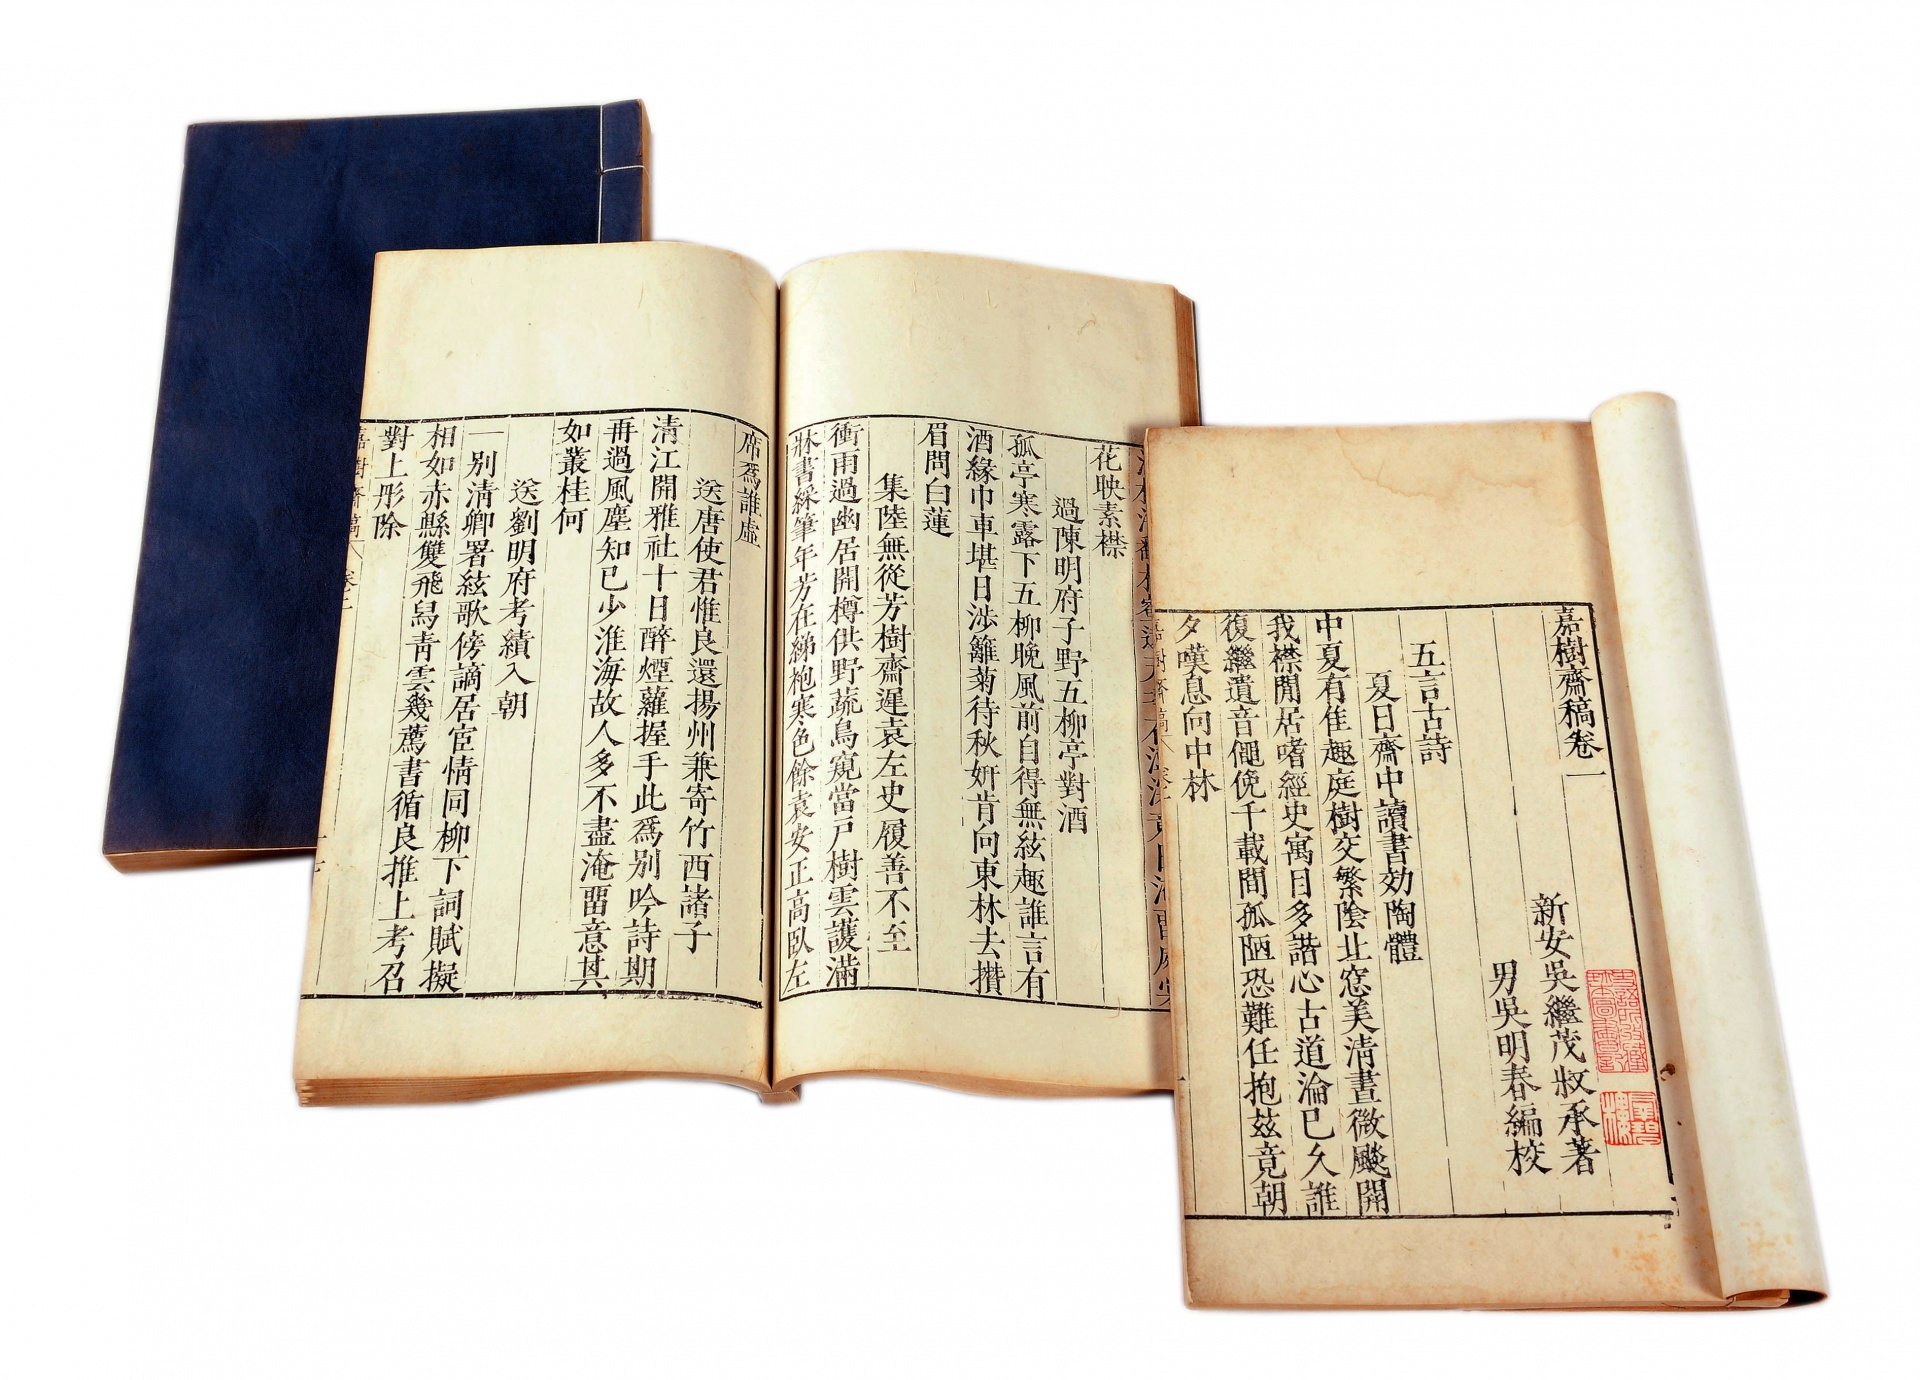 嘉樹齋稿卷一
新安吳繼茂叔承著
男吳明春編校
五言古詩
夏日齋中讀書効陶體
中夏有佳趣庭樹交繁陰北窓美清晝微颸開
我襟閒居嗜經史寓目多諧心古道淪已久誰
復繼遺音僶俛千載間孤陋恐難任抱茲竟朝
夕嘆息向中林
花映素襟
過陳明府子野五柳亭對酒
孤亭寒露下五柳晚風前自得無絃趣誰言有
酒緣巾車堪日涉籬菊待秋妍肯向東林去攢
眉問白蓮
集陸無從芳樹齋遲袁左史履善不至
衝雨過幽居開樽供野蔬鳥窺當戸樹雲護滿
牀書綵筆年芳在綈袍寒色餘袁安正高臥左
席爲誰虛
送唐使君惟良還揚州兼寄竹西諸子
清江開雅社十日醉煙蘿握手此爲別吟詩期
再過風塵知已少淮海故人多不盡淹畱意其
如叢桂何
送劉明府考績入朝
一別清卿署絃歌傍謫居宦情同柳下詞賦擬
相如赤縣雙飛舄青雲幾薦書循良推上考召
對上彤除
嘉樹齋稿